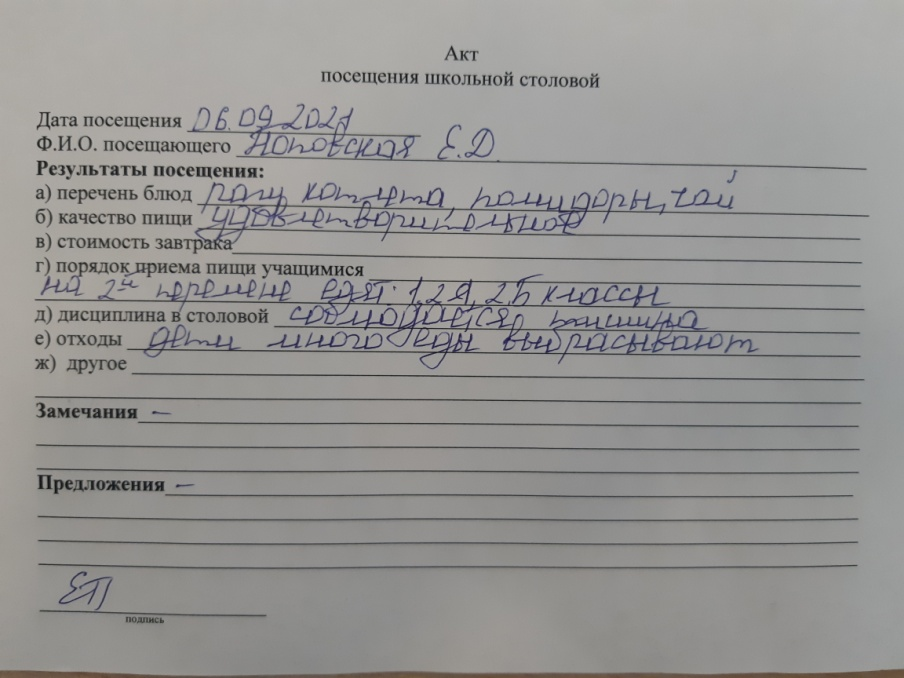 Акт
посещения школьной столовой
Дата посещения 06.09.2021
Ф.И.О. посещающего Поповская Е.Д.
Результаты посещения:
а) перечень блюд рагу котлета, помидоры, чай
б) качество пищи удовлетворительное
в) стоимость завтрака
г) порядок приема пищи учащимися
на 2й перемене едят: 1, 2А, 2Б классы
д) дисциплина в столовой соблюдается, тишина
е) отходы дети много еды выбрасывают
ж) другое
Замечания –
Предложения –
ЕП
подпись